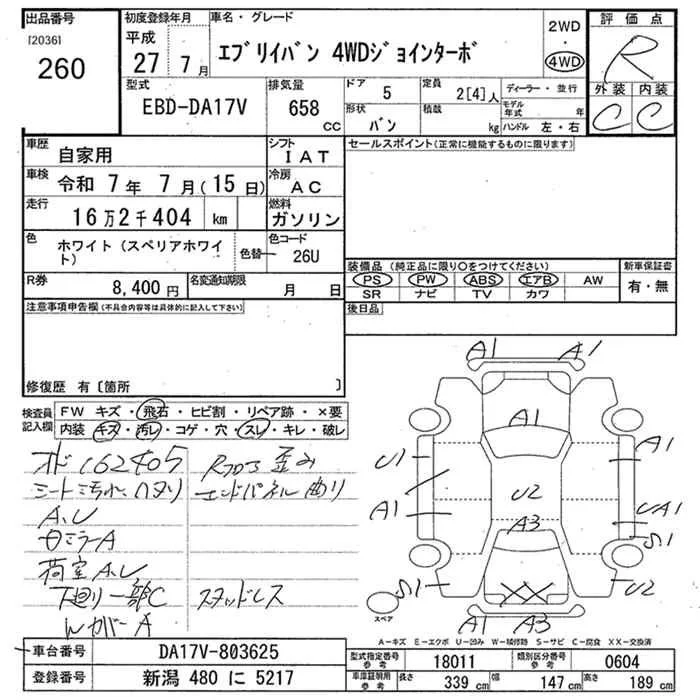 出品番号
[2036]
260
初度登録年月
平成
27 7月
車名・グレード
エブリイバン 4WDジョインターボ
2WD
・
4WD
評価点
R
外装 内装
C C
型式
EBD-DA17V
排気量
658
CC
ドア
5
定員
2[4]人
ディーラー・並行
形状
バン
積載
kg
モデル年式 年
ハンドル 左・右
車歴
自家用
シフト
IAT
セールスポイント(正常に機能するものに限ります)
車検
令和 7年 7月(15日)
冷房
AC
走行
16万2千404 km
燃料
ガソリン
色
ホワイト(スペリアホワイト)
色替
色コード
26U
装備品(純正品に限り○をつけてください)
新車保証書
PS PW ABS エアB AW
SR ナビ TV カワ
有・無
R券
8,400円
名変通知期限
月 日
後日品
注意事項申告欄(不具合内容等は具体的に記入して下さい)
修復歴 有〔箇所 〕
検査員記入欄
FW キズ・飛石・ヒビ割・リペア跡・×要
内装 キズ・汚レ・コゲ・穴・スレ・キレ・破レ
162405
シート汚れ、ハタリ
A、U
ミラーA
荷室A、U
下廻り一部C
WカバーA
歪み
エンドパネル曲り
スタッドレス
A1 A1
A1
U1
A1
A1
U2
UA1
S1
A3
S1
U2
XX
A1 A3
スペア
A−キズ E−エクボ U−凹み W−補修跡 S−サビ C−腐食 XX−交換済
車台番号
DA17V-803625
型式指定番号
参考
18011
類別区分番号
参考
0604
登録番号
新潟 480 に 5217
車庫証明用
参考
長さ
339 cm
幅
147 cm
高さ
189 cm